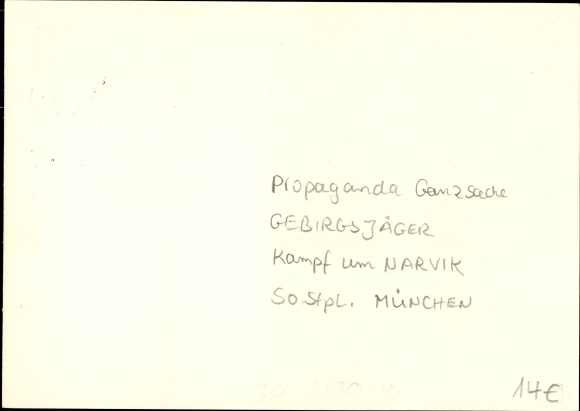 Propaganda Ganzsache
GEBIRGSJÄGER
Kampf um NARVIK
SoStpl. MÜNCHEN
14€